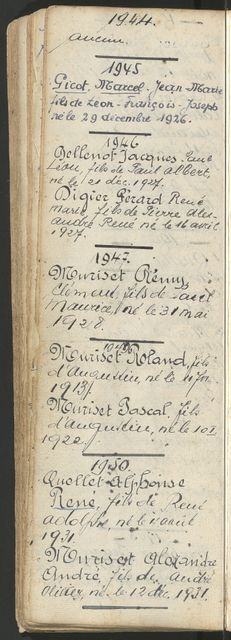 1944.
aucun.
1945
Gicot, Marcel, Jean Marie
fils de Léon-François-Joseph
né le 29 décembre 1926.
1946
Dellenot Jacques Paul
Léon, fils de Paul Albert,
né le 21 déc. 1927.
Digier Gérard René
Marie, fils de Pierre Ale-
andre René né le 16 avril
1927.
1947.
Muriset Rémy
Clément, fils de
Maurice, né le 31 mai
1928.
Muriset Roland, fils
d'Augustin, né le 11
1931
Muriset Pascal, fils
d'Augustin, né le 10
1922.
1950.
Quellet Alphonse
René, fils de René
Adolphe, né le avril
1931.
Muriset Alexandre
André, fils de André
Olivier, né le 12 déc. 1931.